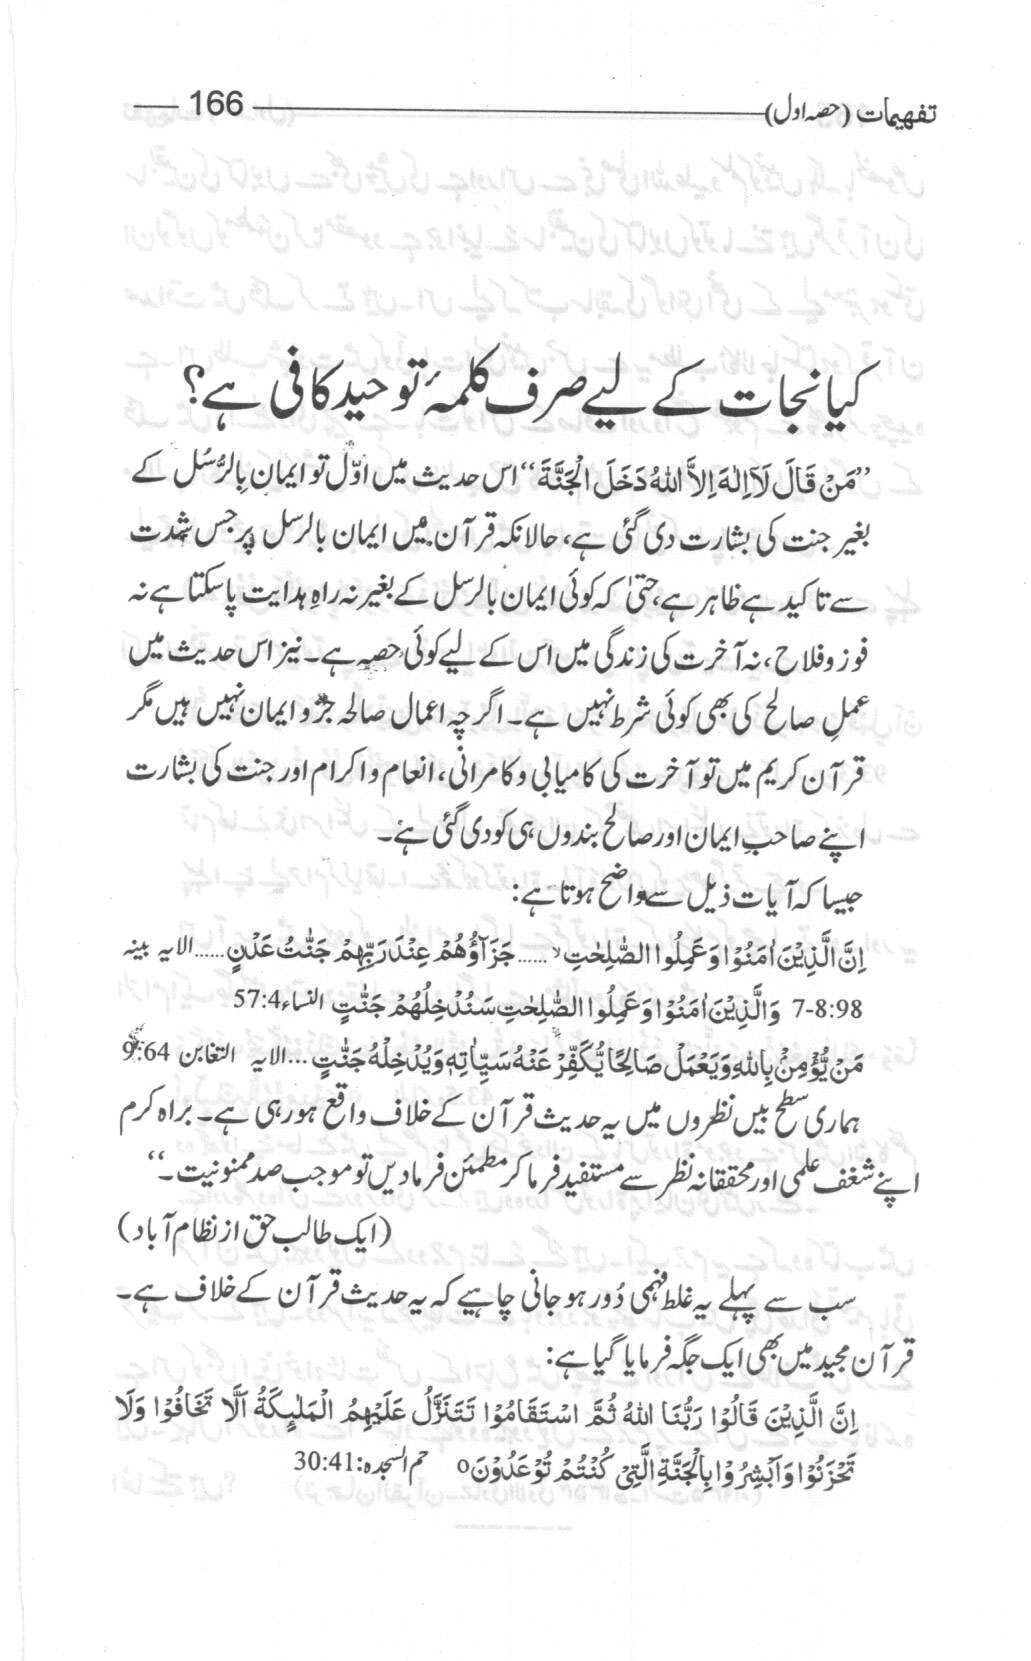 تفہیمات (حصہ اول) 166
کیا نجات کے لیے صرف کلمۂ توحید کافی ہے؟
”مَنْ قَالَ لَآ اِلٰهَ اِلاَّ اللهُ دَخَلَ الْجَنَّةَ“ اس حدیث میں اوّل تو ایمان بِالرُّسُل کے
بغیر جنت کی بشارت دی گئی ہے، حالانکہ قرآن میں ایمان بالرسل پر جس شدت
سے تاکید ہے ظاہر ہے، حتیٰ کہ کوئی ایمان بالرسل کے بغیر نہ راہِ ہدایت پا سکتا ہے نہ
فوز و فلاح، نہ آخرت کی زندگی میں اس کے لیے کوئی حصہ ہے۔ نیز اس حدیث میں
عملِ صالح کی بھی کوئی شرط نہیں ہے۔ اگرچہ اعمال صالحہ جزوِ ایمان نہیں ہیں مگر
قرآن کریم میں تو آخرت کی کامیابی و کامرانی، انعام و اکرام اور جنت کی بشارت
اپنے صاحبِ ایمان اور صالح بندوں ہی کو دی گئی ہے۔
جیسا کہ آیات ذیل سے واضح ہوتا ہے:
اِنَّ الَّذِيْنَ اٰمَنُوْا وَعَمِلُوا الصّٰلِحٰتِ ۙ...... جَزَآؤُهُمْ عِنْدَ رَبِّهِمْ جَنّٰتُ عَدْنٍ...... الایہ بینہ
7-8:98 وَالَّذِيْنَ اٰمَنُوْا وَعَمِلُوا الصّٰلِحٰتِ سَنُدْخِلُهُمْ جَنّٰتٍ النساء 57:4
مَنْ يُّؤْمِنْۢ بِاللهِ وَيَعْمَلْ صَالِحًا يُّكَفِّرْ عَنْهُ سَيِّاٰتِهٖ وَيُدْخِلْهُ جَنّٰتٍ ... الایہ التغابن 9:64
ہماری سطح بیں نظروں میں یہ حدیث قرآن کے خلاف واقع ہو رہی ہے۔ براہ کرم
اپنے شغف علمی اور محققانہ نظر سے مستفید فرما کر مطمئن فرمادیں تو موجب صد ممنونیت۔“
(ایک طالب حق از نظام آباد)
سب سے پہلے یہ غلط فہمی دُور ہو جانی چاہیے کہ یہ حدیث قرآن کے خلاف ہے۔
قرآن مجید میں بھی ایک جگہ فرمایا گیا ہے:
اِنَّ الَّذِيْنَ قَالُوْا رَبُّنَا اللهُ ثُمَّ اسْتَقَامُوْا تَتَنَزَّلُ عَلَيْهِمُ الْمَلٰٓئِكَةُ اَلَّا تَخَافُوْا وَلَا
تَحْزَنُوْا وَاَبْشِرُوْا بِالْجَنَّةِ الَّتِيْ كُنْتُمْ تُوْعَدُوْنَo حم السجدہ: 30:41